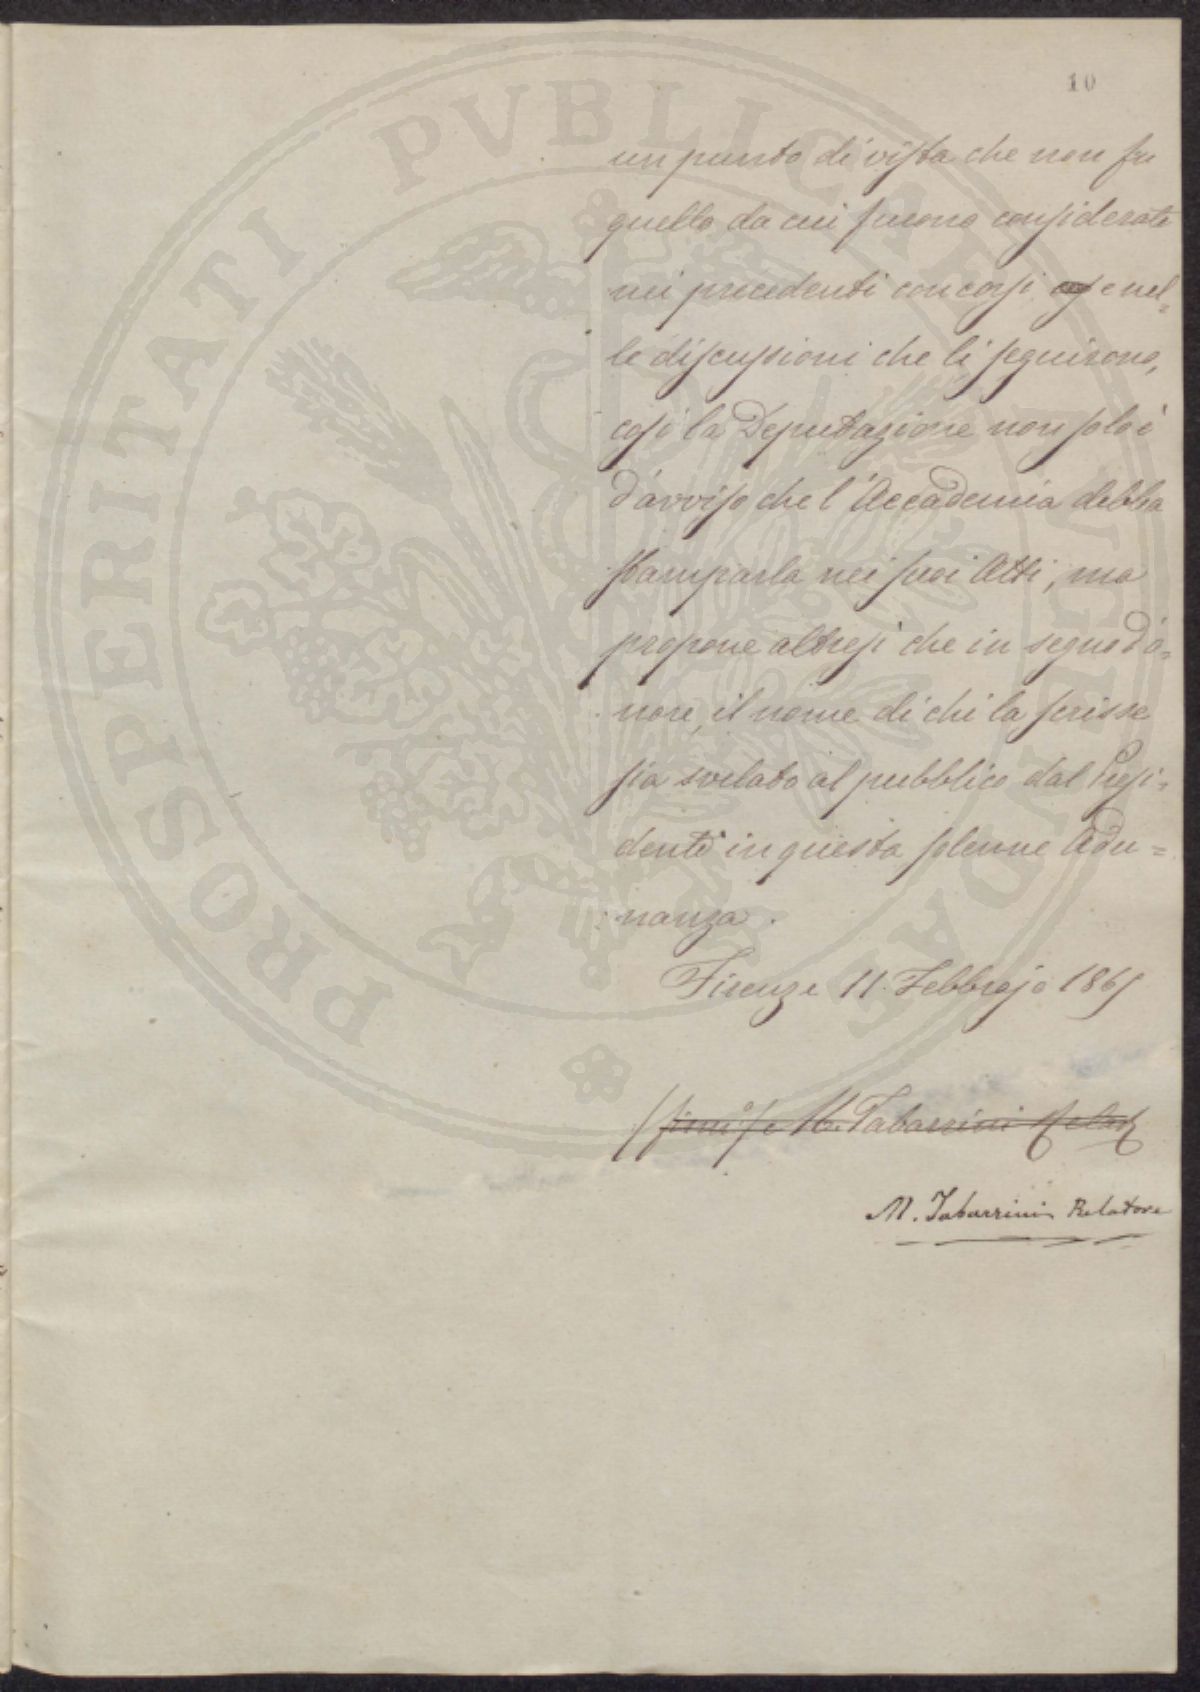 10
un punto di vista che non fu
quello da cui furono considerate
nei precedenti concorsi e nel=
le discussioni che li seguirono,
così la Deputazione non solo è
d'avviso che l'Accademia debba
stamparla nei suoi Atti, ma
propone altresì che in segno d'o=
nore, il nome di chi la scrisse
sia svelato al pubblico dal Presi=
dente in questa solenne Adu=
nanza.
Firenze 11. Febbrajo 1865
M. Tabarrini Relat
M. Tabarrini Relatore
PROSPERITATI PVBLICAE AVGENDAE